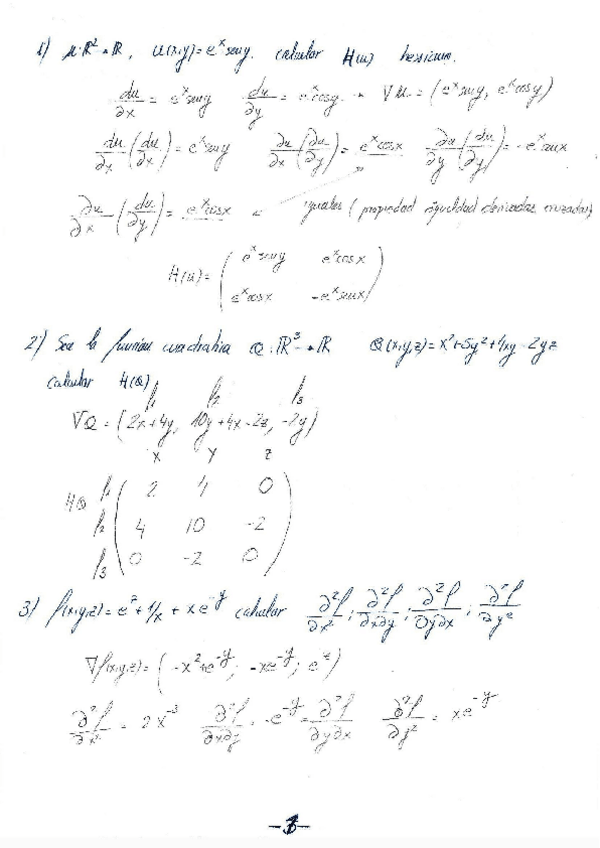 1) u: R² → R, u(x,y) = eˣ sen y. calcular H(u) hessiana.
du/∂x = eˣ sen y   du/∂y = eˣ cos y → ∇u = (eˣ sen y, eˣ cos y)
∂u/∂x (du/∂x) = eˣ sen y   ∂u/∂x (∂u/∂y) = eˣ cos x   ∂u/∂y (du/∂y) = -eˣ sen x
∂u/∂x (du/∂y) = eˣ cos x ← iguales (propiedad igualdad derivadas cruzadas)
H(u) = ( eˣ sen y   eˣ cos x
eˣ cos x   -eˣ sen x )
2) Sea la función cuadrática Q: R³ → R   Q(x,y,z) = x² + 5y² + 4xy - 2yz
calcular H(Q)
f₁   f₂   f₃
∇Q = (2x+4y, 10y+4x-2z, -2y)
x   y   z
HQ f₁ ( 2   4   0
f₂   4   10   -2
f₃   0   -2   0 )
3) f(x,y,z) = eᶻ + 1/x + x e⁻ʸ calcular ∂²f/∂x²; ∂²f/∂x∂y; ∂²f/∂y∂x; ∂²f/∂y²
∇f(x,y,z) = ( -x⁻² + e⁻ʸ; -xe⁻ʸ; eᶻ )
∂²f/∂x² = 2x⁻³   ∂²f/∂x∂y = -e⁻ʸ = ∂²f/∂y∂x   ∂²f/∂y² = xe⁻ʸ